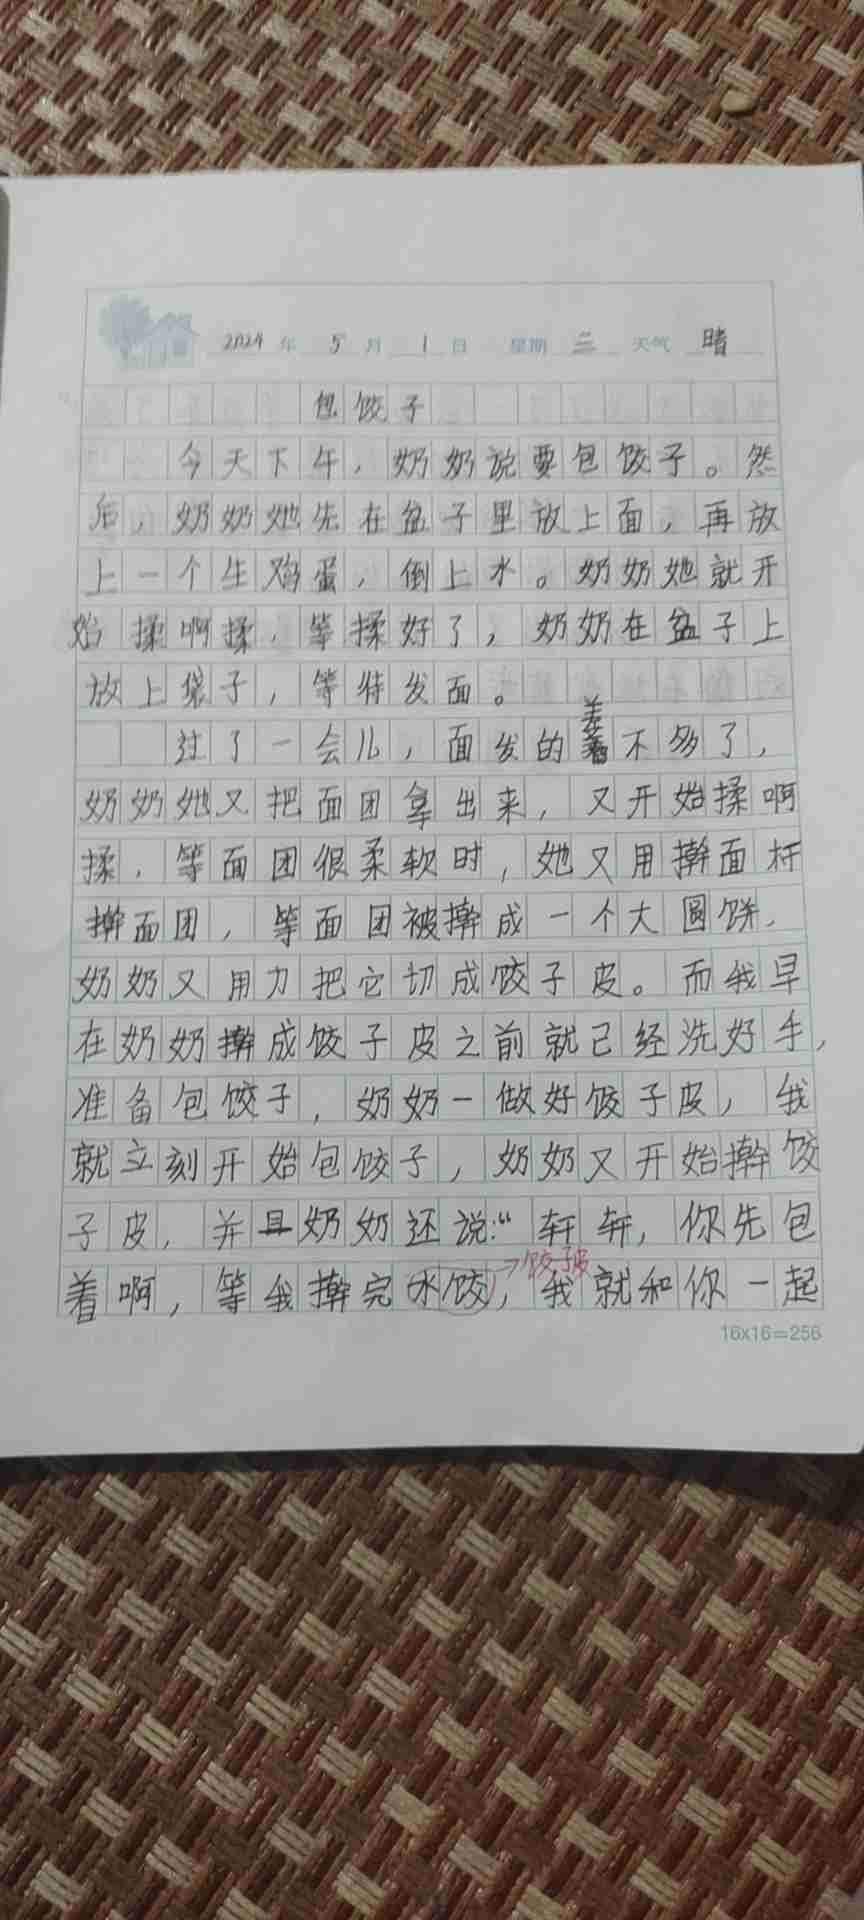 2024 年 5 月 1 日 星期 三 天气 晴
包饺子
今天下午，奶奶说要包饺子。然
后，奶奶她先在盆子里放上面，再放
上一个生鸡蛋，倒上水。奶奶她就开
始揉啊揉，等揉好了，奶奶在盆子上
放上袋子，等待发面。
过了一会儿，面发的差不多了，
奶奶她又把面团拿出来，又开始揉啊
揉，等面团很柔软时，她又用擀面杆
擀面团，等面团被擀成一个大圆饼，
奶奶又用力把它切成饺子皮。而我早
在奶奶擀成饺子皮之前就已经洗好手，
准备包饺子，奶奶一做好饺子皮，我
就立刻开始包饺子，奶奶又开始擀饺
子皮，并且奶奶还说：“轩轩，你先包
→饺子皮
着啊，等我擀完水饺，我就和你一起
16x16=256